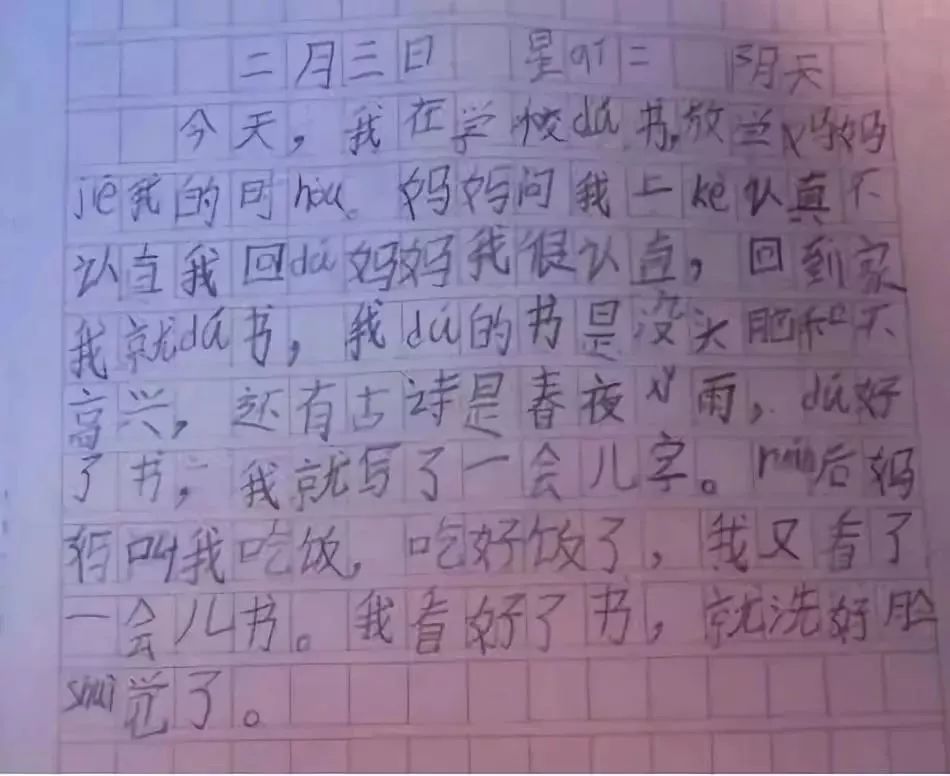 二月三日 星qī二 阴天
今天，我在学校dú书，放学妈妈
jiē我的时hòu。妈妈问我上kè认真不
认直我回dá妈妈我很认直，回到家
我就dú书，我dú的书是没头脑和不
高兴，还有古诗是春夜xǐ雨，dú好
了书，我就写了一会儿字。rán后妈
妈叫我吃饭，吃好饭了，我又看了
一会儿书。我看好了书，就洗好脸
shuì觉了。